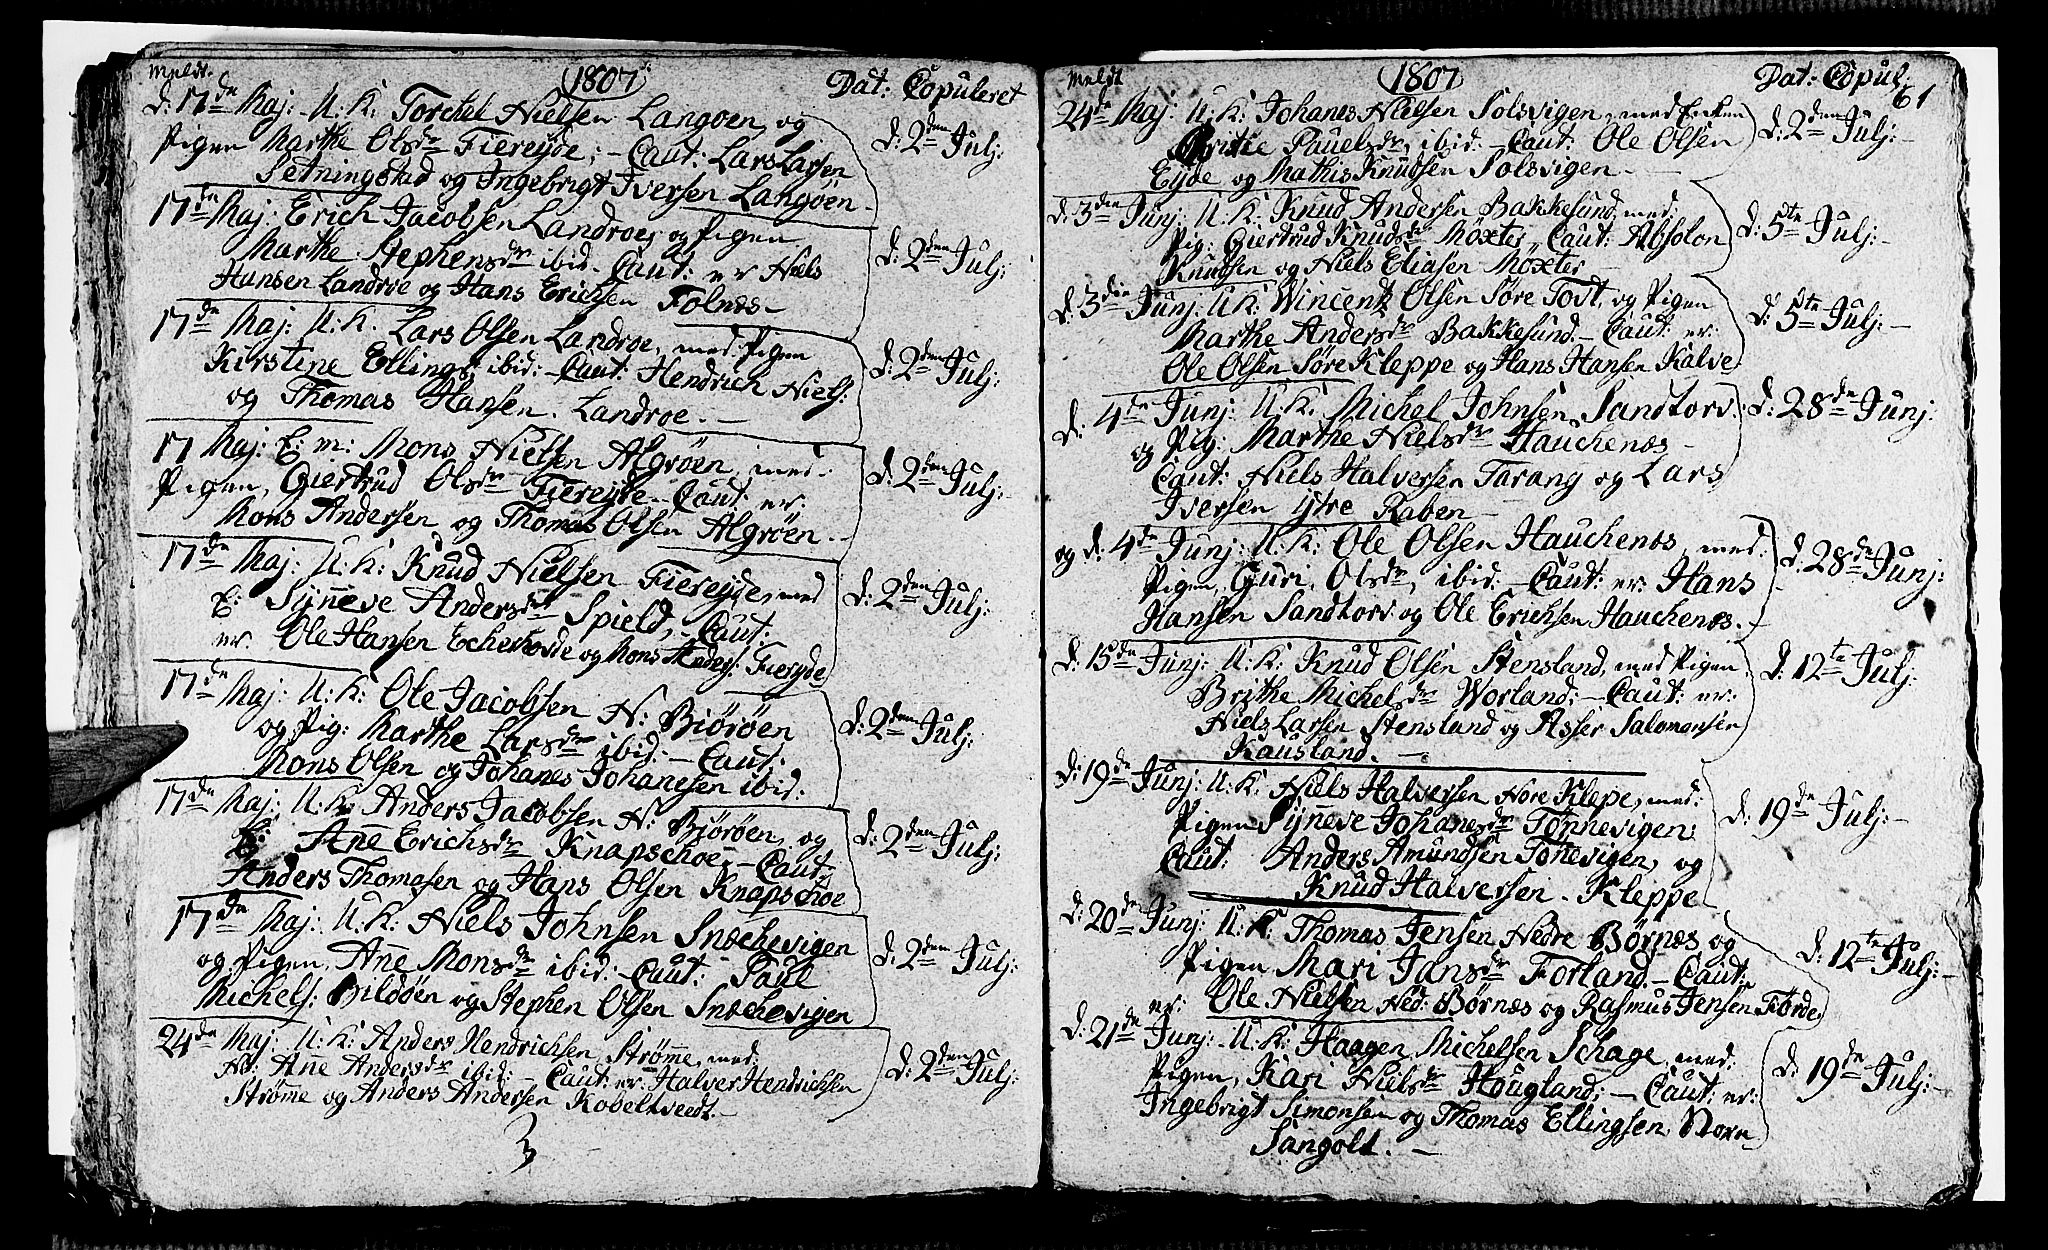 Meldt. 1807 Dat: Copuleret
d: 17de Maj: U: K: Torchel Nielsen Langøen, og d: 2den Julj:
Pigen Marthe Olsdr Fiereyde; – Caut: Lars Larsen
Setningstad og Ingebrigt Iversen Langøen –
17de Maj: Erich Jacobsen Landroe, og Pigen d: 2den Julj:
Marthe Stephensdr ibid – Caut: er Niels
Hansen Landroe og Hans Erichsen Folnæs –
17de Maj: U: K. Lars Olsen Landroe, med Pigen d: 2den Julj:
Kirstine Ellings: ibid: – Caut: Hendrich Niels:
og Thomas Hansen. Landroe. –
17 Maj: E: m: Mons Nielsen Algrøen, med d: 2den Julj:
Pigen, Giertrud Olsdr Fiereyde – Caut: er:
Mons Andersen og Thomas Olsen Algrøen –
17de Maj: U: K: Knud Nielsen Fiereyde, med d: 2den Julj:
E: Synneve Andersdr Spield, – Caut:
er. Ole Hansen og Mons Anders: Fiereyde
17de Maj: U: K: Ole Jacobsen N: Biørøen d: 2den Julj:
og Pig: Marthe Larsdr ibid: – Caut:
Mons Olsen og Johanes Johanesen ibid:
17de Maj: U: K. Anders Jacobsen N: Biørøen, og d: 2den Julj:
E: Anne Erichsdr Knapschoe, – Caut:
Anders Thomasen og Hans Olsen Knapschoe
17de Maj: U: K: Niels Johnsen Snechevigen d: 2den Julj:
og Pigen, Anne Monsdr ibid: – Caut: Paul
Michels: Bildøen og Stephen Olsen Snechevigen
24de Maj: U: K: Anders Hendrichsen Strømme, med: d: 2den Julj:
Anne Andersdr ibid: – Caut: er: Halver Hendrichsen
Strøme og Anders Andersen Kobeltvedt. –
Meldt 1807 Dat: Copul:
61
24de Maj: U: K: Johanes Nielsen Solsvigen, med d: 2den Julj:
Britie Pauelsdr, ibid: – Caut: Ole Olsen
Eyde og Mathis Knudsen Solsvigen –
d: 3die Junj: U: K: Knud Andersen Bakkesund, med: d: 5te Julj: –
Pig: Giertrud Knudsdr Møxter, Caut: Absolon
Knudsen og Niels Eliasen Møxter –
d: 3die Junj: U: K: Wincentz Olsen Søre Tost, og Pigen d: 5te Julj: –
Marthe Andersdr Bakkesund. – Caut: er:
Ole Olsen Søre Kleppe og Hans Hansen Kalve
d: 4de Junj: U: K: Michel Johnsen Sandtorv d: 28de Junj:
og Pig: Marthe Nielsdr Hauchenæs –
Caut: Niels Halversen Tarang og Lars
Iversen ytre Raben –
og d: 4de Junj: U: K: Ole Olsen Hauchenæs, med d: 28de Junj:
Pigen, Guri, Olsdr, ibid: – Caut: er: Hans
Hansen Sandtorv og Ole Erichsen Hauchenæs. –
d: 15de Junj: U: K: Knud Olsen Stensland, med Pigen d: 12te Julj:
Brithe Michelsdr Worland; – Caut: er:
Niels Larsen Stensland og Asser Salomonsen
Kausland. –
d: 19de Junj: U: K: Niels Halversen Nore Klepe, med: d: 19de Julj: –
Pigen Synneve Johanesdr Tønnevigen;
Caut: Anders Amundsen Tønevigen, og
Knud Halversen. Kleppe
d: 20de Junj: U: K: Thomas Jensen Nedre Børnæs og d: 12te Julj: –
Pigen Mari Jansdr Forland. – Caut:
er: Ole Nielsen Ned: Børnæs og Rasmus Jensen Førde
d: 21de Junj: U: K: Haagen Michelsen Schage, med: d: 19de Julj: –
Pigen, Kari Nielsdr Hougland; – Caut: er:
Ingebrigt Simonsen og Thomas Ellingsen Norn
Sangolt. –